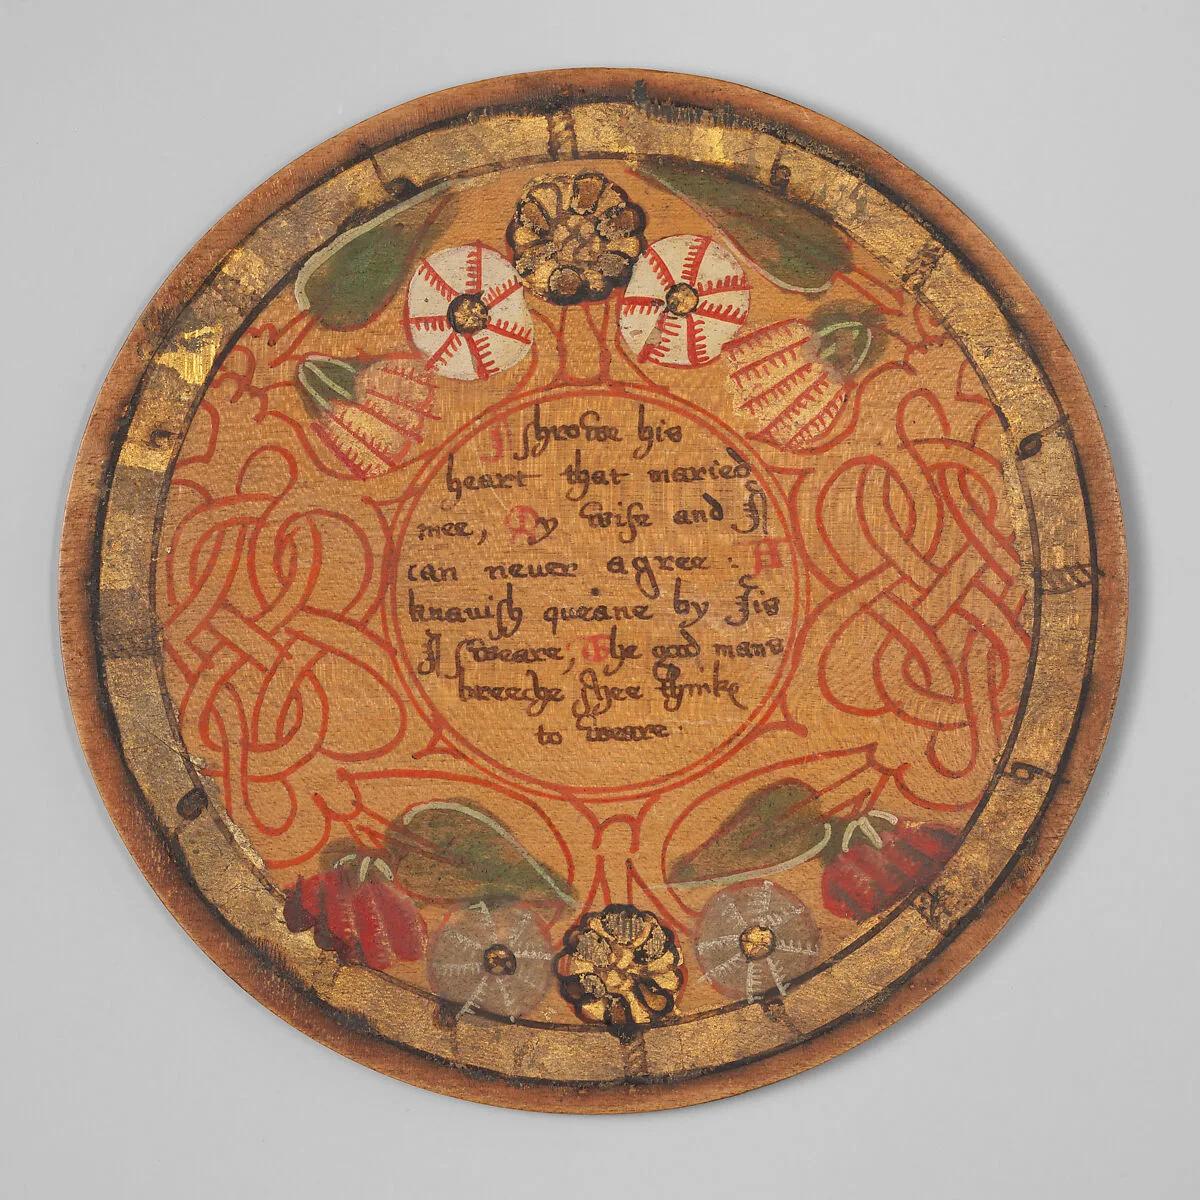 I shrowe his
heart that maried
mee, My wife and I
can never agree : A
knavish queane by Jis
I sweare, The good mans
breeche shee thinke
to weare.